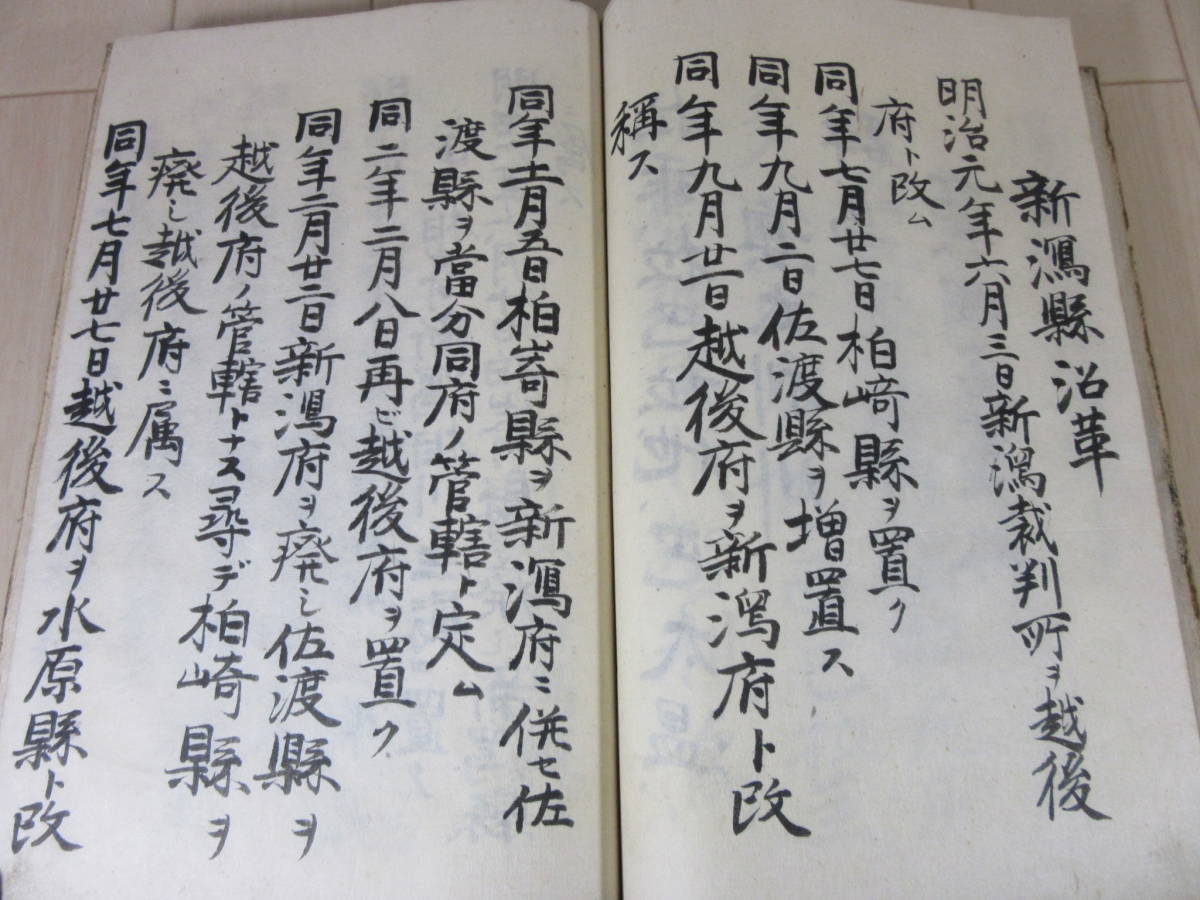 新潟縣沿革
明治元年六月三日新潟裁判所ヲ越後
府ト改ム
同年七月廿七日柏崎縣ヲ置ク
同年九月二日佐渡縣ヲ増置ス
同年九月廿一日越後府ヲ新潟府ト改
稱ス
同年十一月五日柏嵜縣ヲ新潟府ニ併セ佐
渡縣ヲ當分同府ノ管轄ト定ム
同二年二月八日再ビ越後府ヲ置ク
同年二月廿二日新潟府ヲ廃シ佐渡縣ヲ
越後府ノ管轄トナス尋デ柏崎縣ヲ
廃シ越後府ニ属ス
同年七月廿七日越後府ヲ水原縣ト改